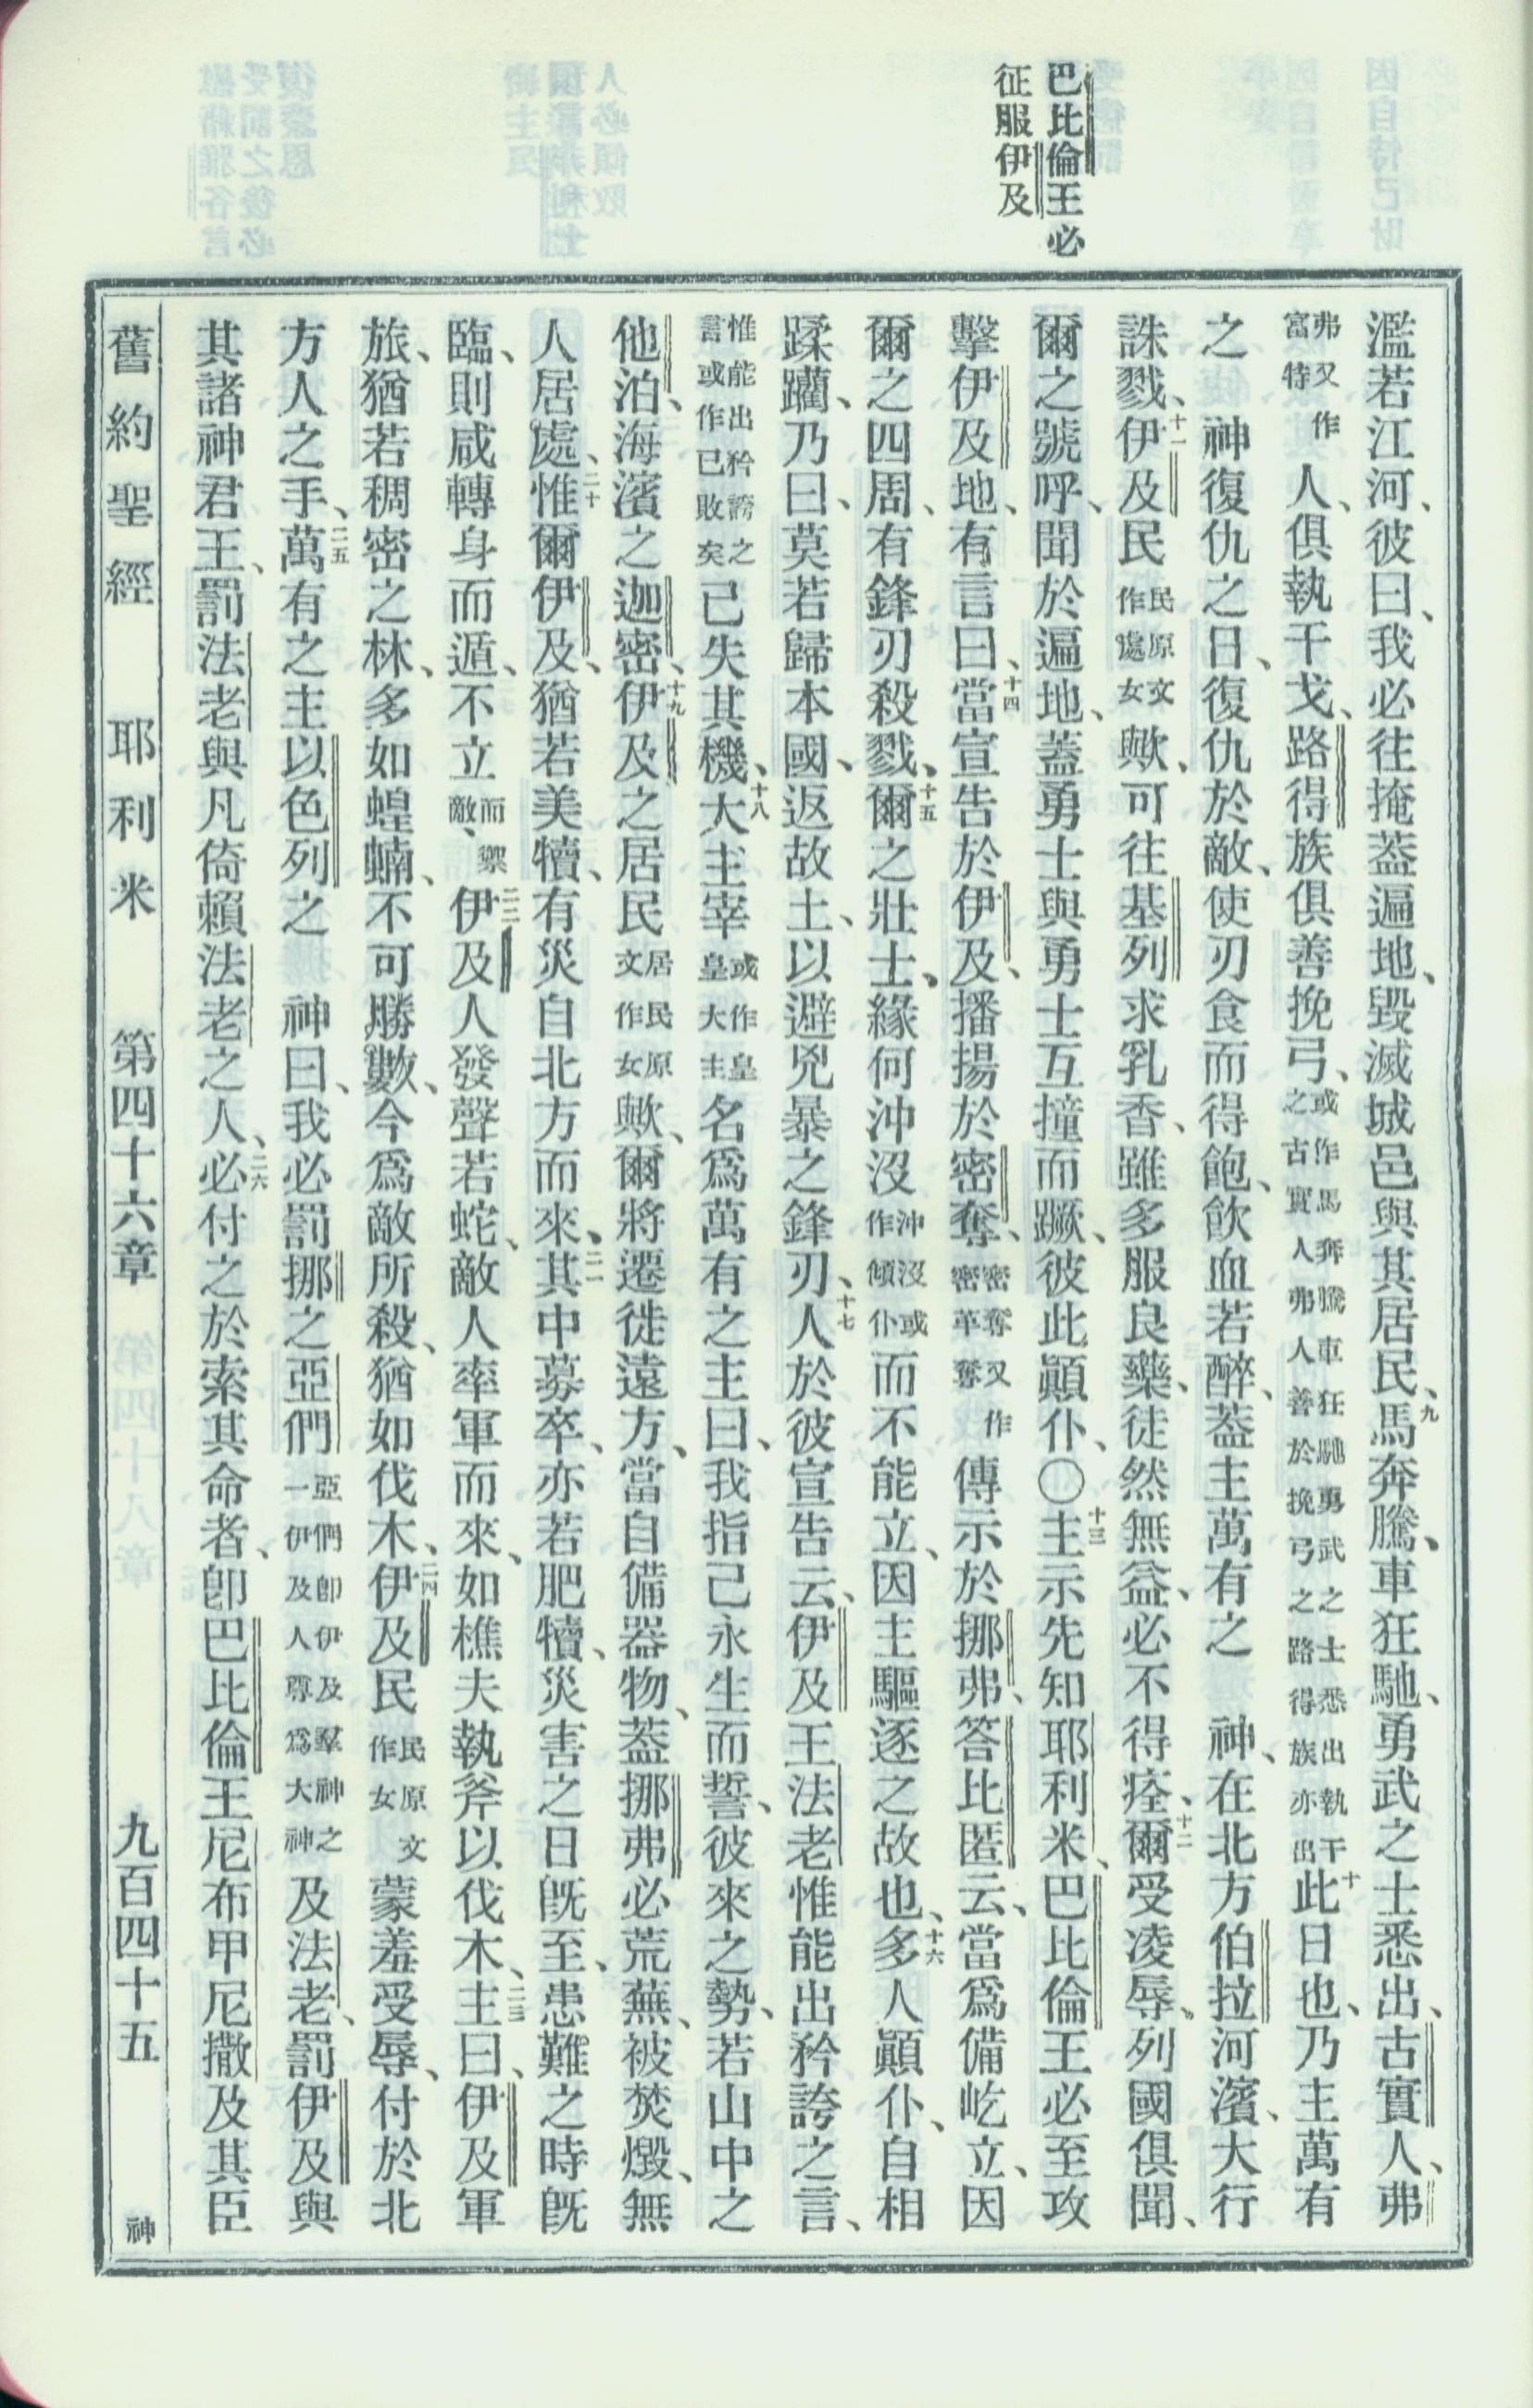 巴比倫王必
征服伊及
濫若江河、彼曰、我必往掩蓋遍地、毀滅城邑與其居民、九馬奔騰、車狂馳、勇武之士悉出、古實人、弗
弗又作富特人、俱執干戈、路得族俱善挽弓、或作馬奔騰車狂馳勇武之士悉出執干之古實人弗人善於挽弓之路得族亦出十此日也、乃主萬有
之　神復仇之日、復仇於敵、使刃食而得飽、飲血若醉、蓋主萬有之　神、在北方伯拉河濱、大行
誅戮、十一伊及民民原文作處女歟、可往基列求乳香、雖多服良藥、徒然無益、必不得痊、十二爾受凌辱、列國俱聞、
爾之號呼、聞於遍地、蓋勇士與勇士互撞而蹶、彼此顚仆、〇十三主示先知耶利米、巴比倫王必至攻
擊伊及地、有言曰、十四當宣告於伊及、播揚於密奪、密奪又作密革奪傳示於挪弗、答比匿云、當爲備屹立、因
爾之四周、有鋒刃殺戮、十五爾之壯士、緣何沖沒沖沒或作傾仆而不能立、因主驅逐之故也、十六多人顚仆、自相
蹂躪、乃曰、莫若歸本國、返故土、以避兇暴之鋒刃、十七人於彼宣告云、伊及王法老惟能出矜誇之言、
惟能出矜誇之言或作已敗矣已失其機、十八大主宰或作皇皇大主名爲萬有之主曰、我指己永生而誓、彼來之勢、若山中之
他泊、海濱之迦密、十九伊及之居民居民原文作女歟、爾將遷徙遠方、當自備器物、蓋挪弗必荒蕪、被焚燬、無
人居處、二十惟爾伊及、猶若美犢、有災自北方而來、二一其中募卒、亦若肥犢、災害之日旣至、患難之時旣
臨、則咸轉身而遁、不立而禦敵、二二伊及人發聲若蛇、敵人率軍而來、如樵夫執斧以伐木、二三主曰、伊及軍
旅、猶若稠密之林、多如蝗蝻、不可勝數、今爲敵所殺、猶如伐木、二四伊及民民原文作女蒙羞受辱、付於北
方人之手、二五萬有之主以色列之　神曰、我必罰挪之亞們亞們卽伊及羣神之一伊及人尊爲大神及法老、罰伊及與
其諸神君王、罰法老與凡倚賴法老之人、二六必付之於索其命者、卽巴比倫王尼布甲尼撒及其臣
舊約聖經　耶利米　第四十六章　九百四十五　神